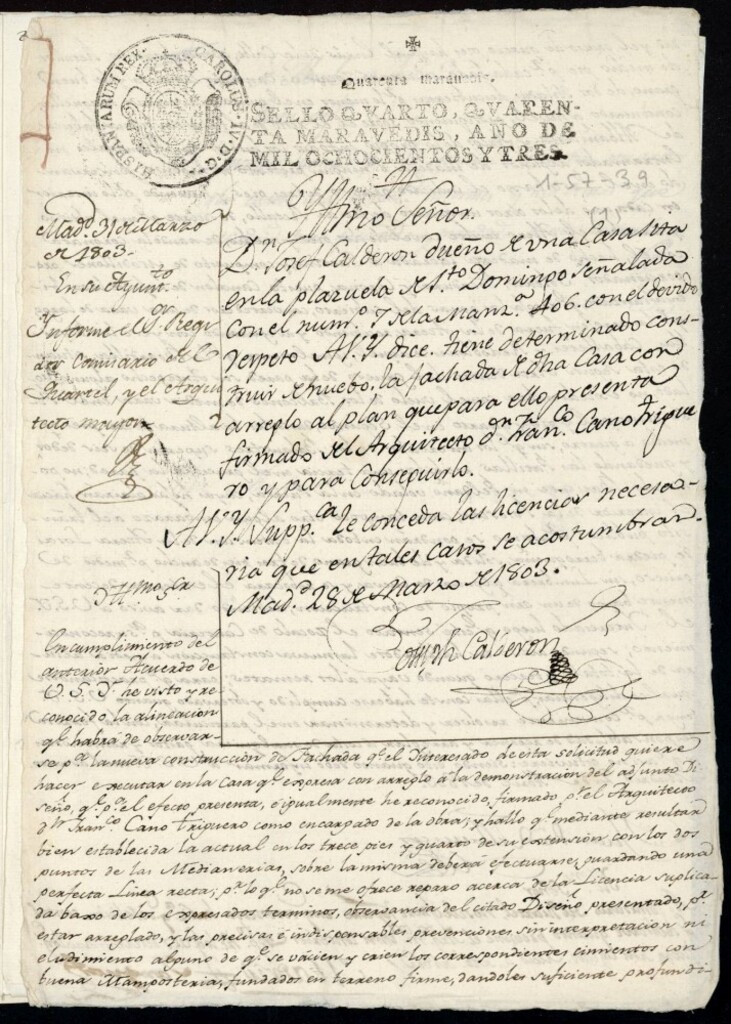 HISPANIARUM REX. CAROLUS. IV. D. G.
Quarenta maravedis.
SELLO QVARTO, QVAREN-
TA MARAVEDIS, AÑO DE
MIL OCHOCIENTOS Y TRES.
1-57-39
(1)
Yllmo Señor.
Dn. Josef Calderon dueño de una Casa sita
en la plazuela de Sto. Domingo señalada
con el numo. 7 de la Manza. 406. con el devido
respeto A V.Y. dice. tiene determinado cons-
truir de nuebo. la fachada de dha Casa con
arreglo al plan que para ello presenta
firmado del Arquitecto dn. Franco. Cano Trigue
ro y para Conseguirlo.
A V.Y. Suppca. le conceda las licencias necesa-
ria que en tales casos se acostumbran.
Madd. 28 de Marzo de 1803.
Joseph Calderon
Madd. 31 de Marzo
de 1803.
En su Ayuntto.
Ynforme el Sor. Regi
dor Comisario del
Quartel, y el Arqui
tecto mayor
Yllmo Sor
En cumplimiento del
anterior Acuerdo de
V. S. Y. he visto y re
conocido la alineacion
qe. habra de observar-
se pa. la nueva construccion de Fachada qe. el Interesado de esta solicitud quiere
hacer executar en la Casa qe. expresa con arreglo á la demostracion del adjunto Di
seño, qe. pa. el efecto presenta, é igualmente he reconocido, firmado pr. el Arquitecto
dn. Franco. Cano Triguero como encargado de la obra; y hallo qe. mediante resultar
bien establecida la actual en los trece pies y quarto de su extensión con los dos
puntos de las Medianerias, sobre la misma deberá efectuarse, guardando una
perfecta Linea recta; pr. lo qe. no se me ofrece reparo acerca de la Licencia suplica
da baxo de los expresados terminos, observancia del citado Diseño presentado, pr.
estar arreglado, y las precisas é indispensables prevenciones sin interpretacion ni
eludimiento alguno de qe. se vacien y crien los correspondientes cimientos con
buena Mamposteria, fundados en terreno firme, dandoles suficiente profundi-